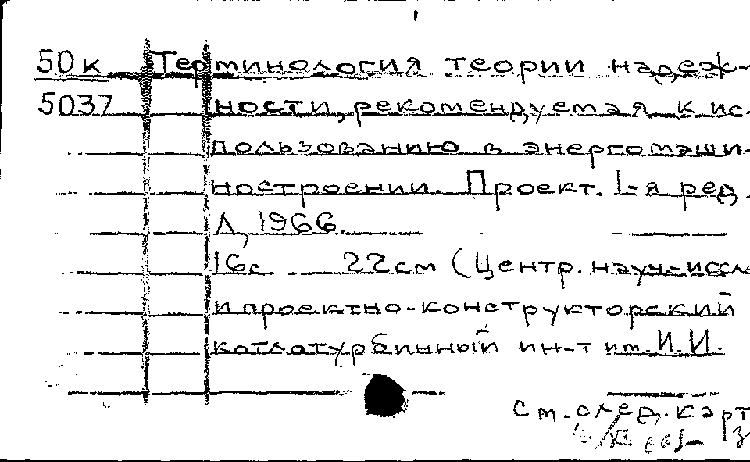 50к Терминология теории надеж-
5037 ности, рекомендуемая к ис-
пользованию в энергомаши-
ностроении. Проект. 1-я ред.
Л, 1966.
16с 22см (Центр. науч-иссле
и проектно-конструкторский
котлотурбинный ин-т им. И.И.
См. след. карт